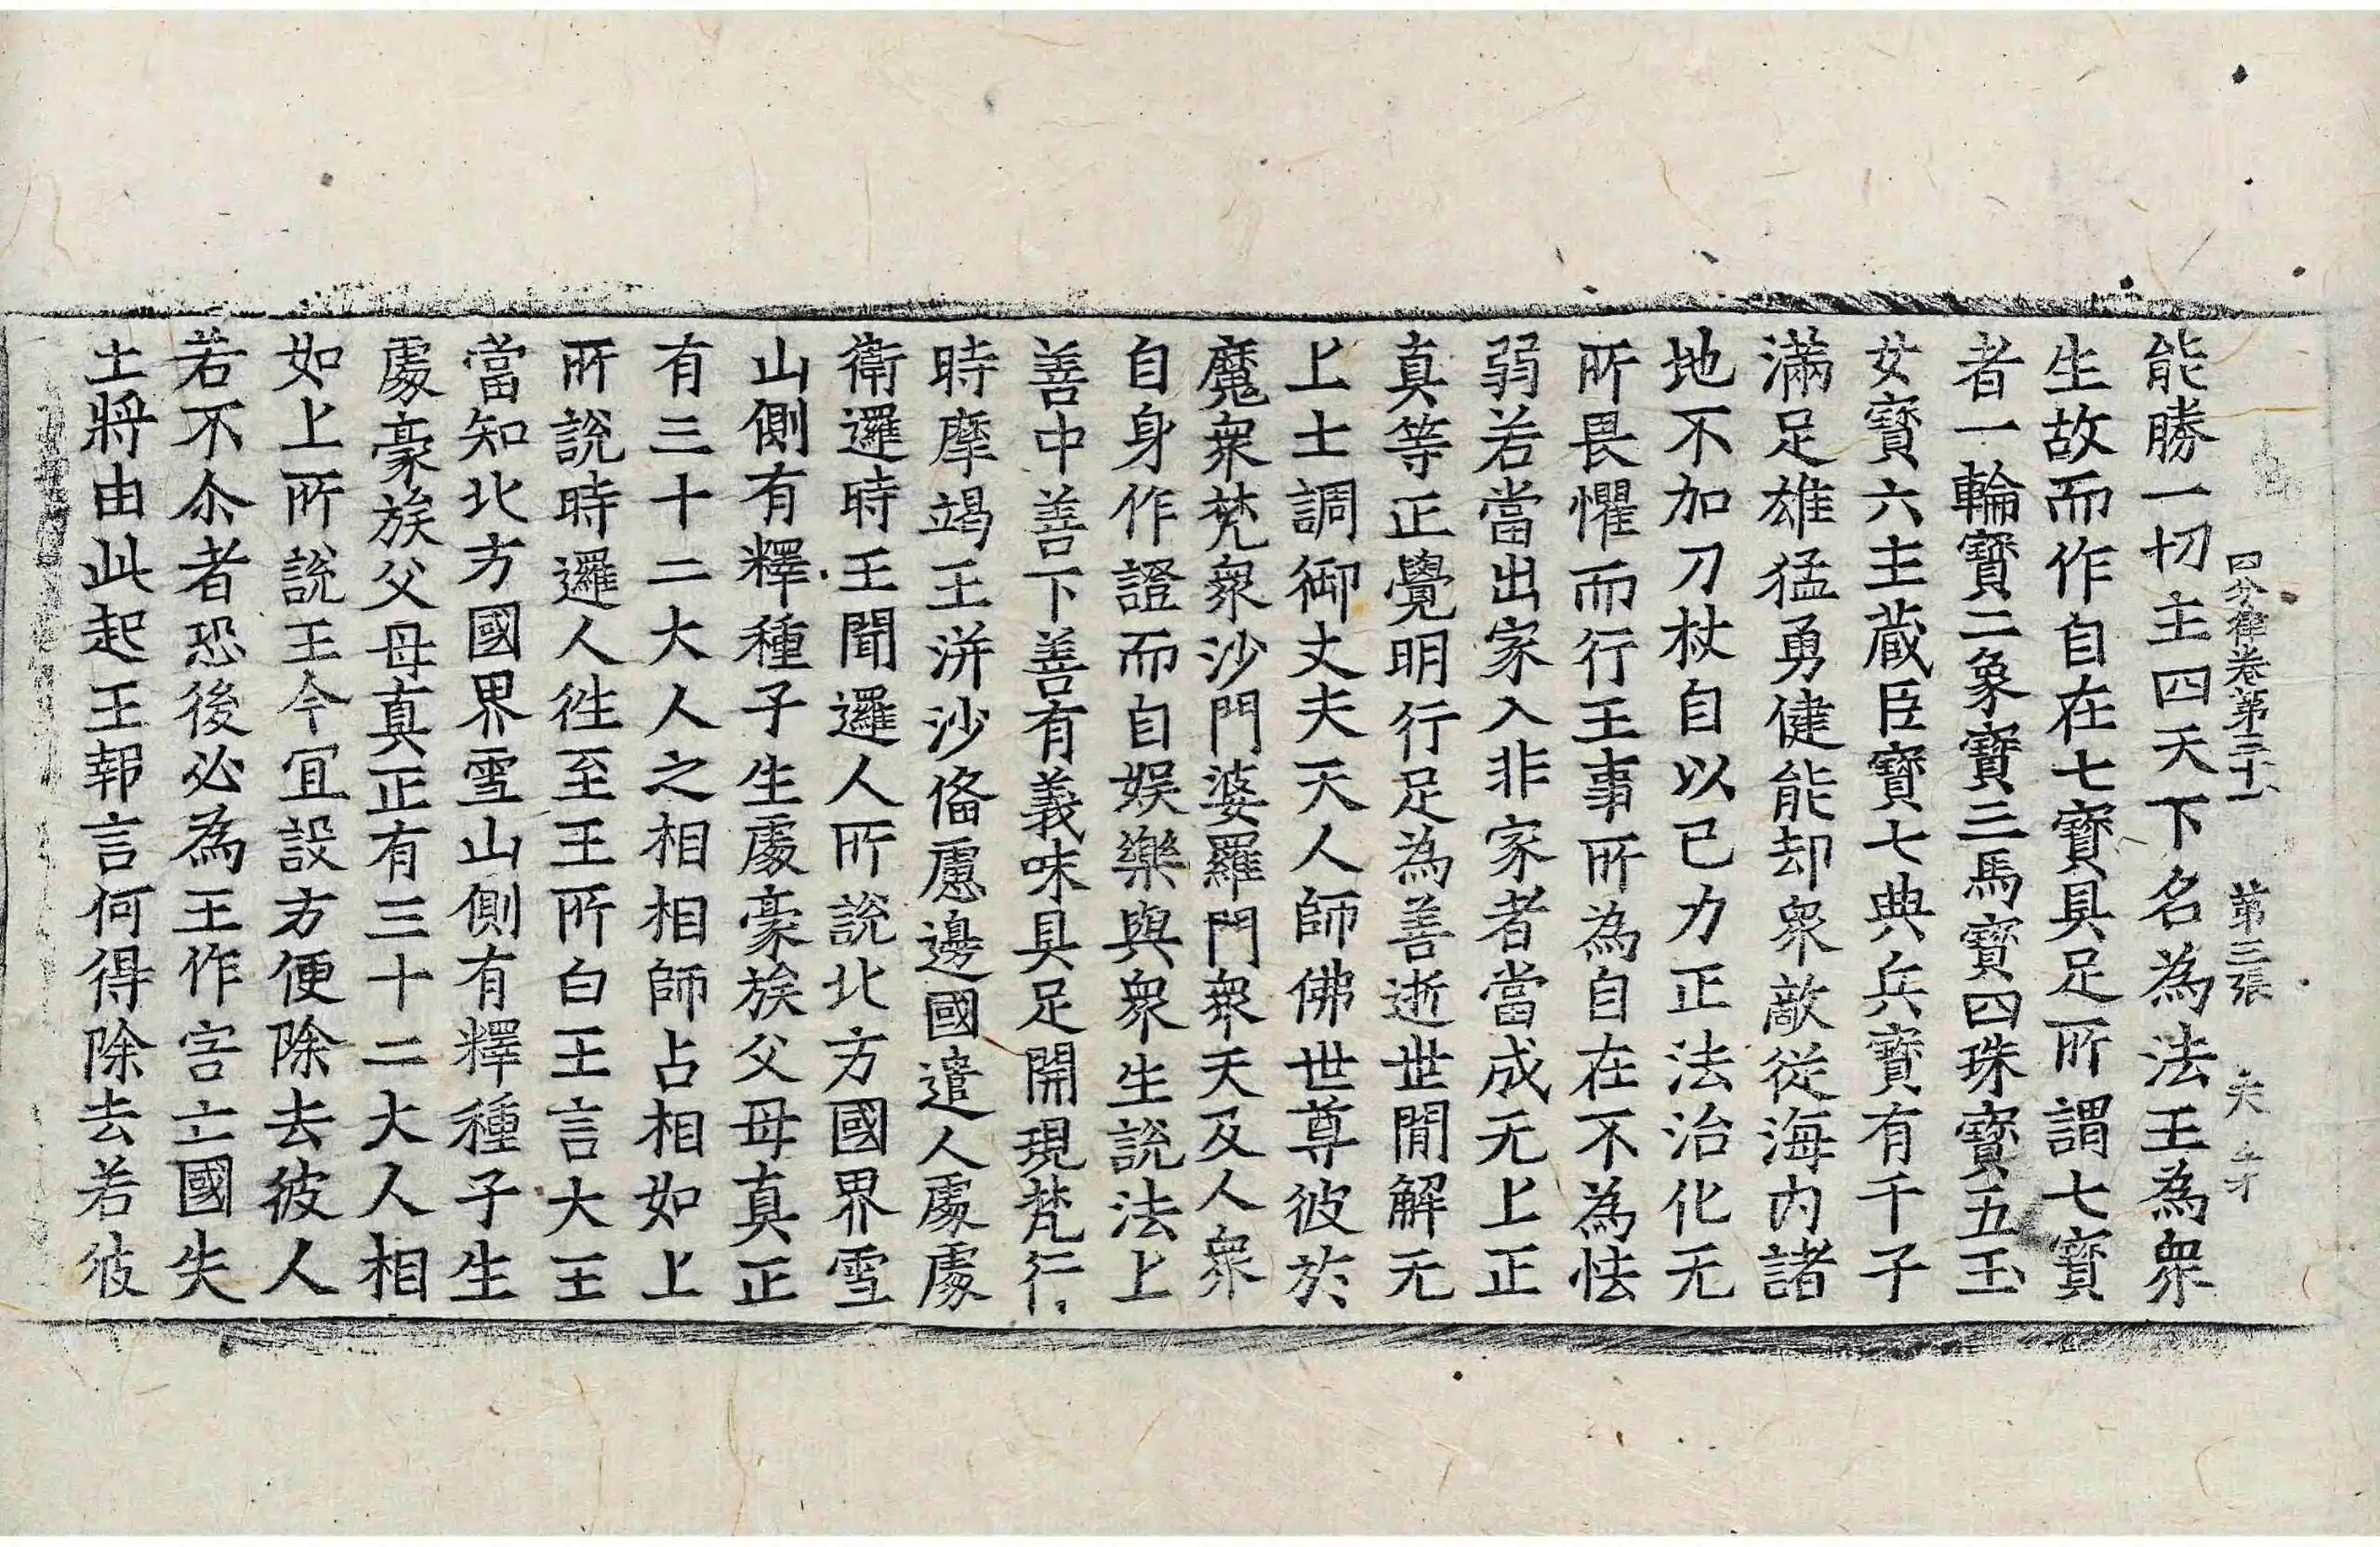 四分律卷第三十一　第三張　夫
能勝一切主四天下名為法王為衆
生故而作自在七寶具足所謂七寶
者一輪寶二象寶三馬寶四珠寶五玉
女寶六主蔵臣寶七典兵寶有千子
滿足雄猛勇健能却衆敵從海內諸
地不加刀杖自以已力正法治化无
所畏懼而行王事所為自在不為怯
弱若當出家入非家者當成无上正
真等正覺明行足為善逝世閒解无
上士調御丈夫天人師佛世尊彼於
魔衆梵衆沙門婆羅門衆天及人衆
自身作證而自娛樂與衆生說法上
善中善下善有義味具足開現梵行
時摩竭王洴沙俻慮邊國遣人處處
衛邏時王聞邏人所說北方國界雪
山側有釋種子生處豪族父母真正
有三十二大人之相相師占相如上
所說時邏人徃至王所白王言大王
當知北方國界雪山側有釋種子生
處豪族父母真正有三十二大人相
如上所說王今冝設方便除去彼人
若不尒者恐後必為王作害亡國失
土將由此起王報言何得除去若彼